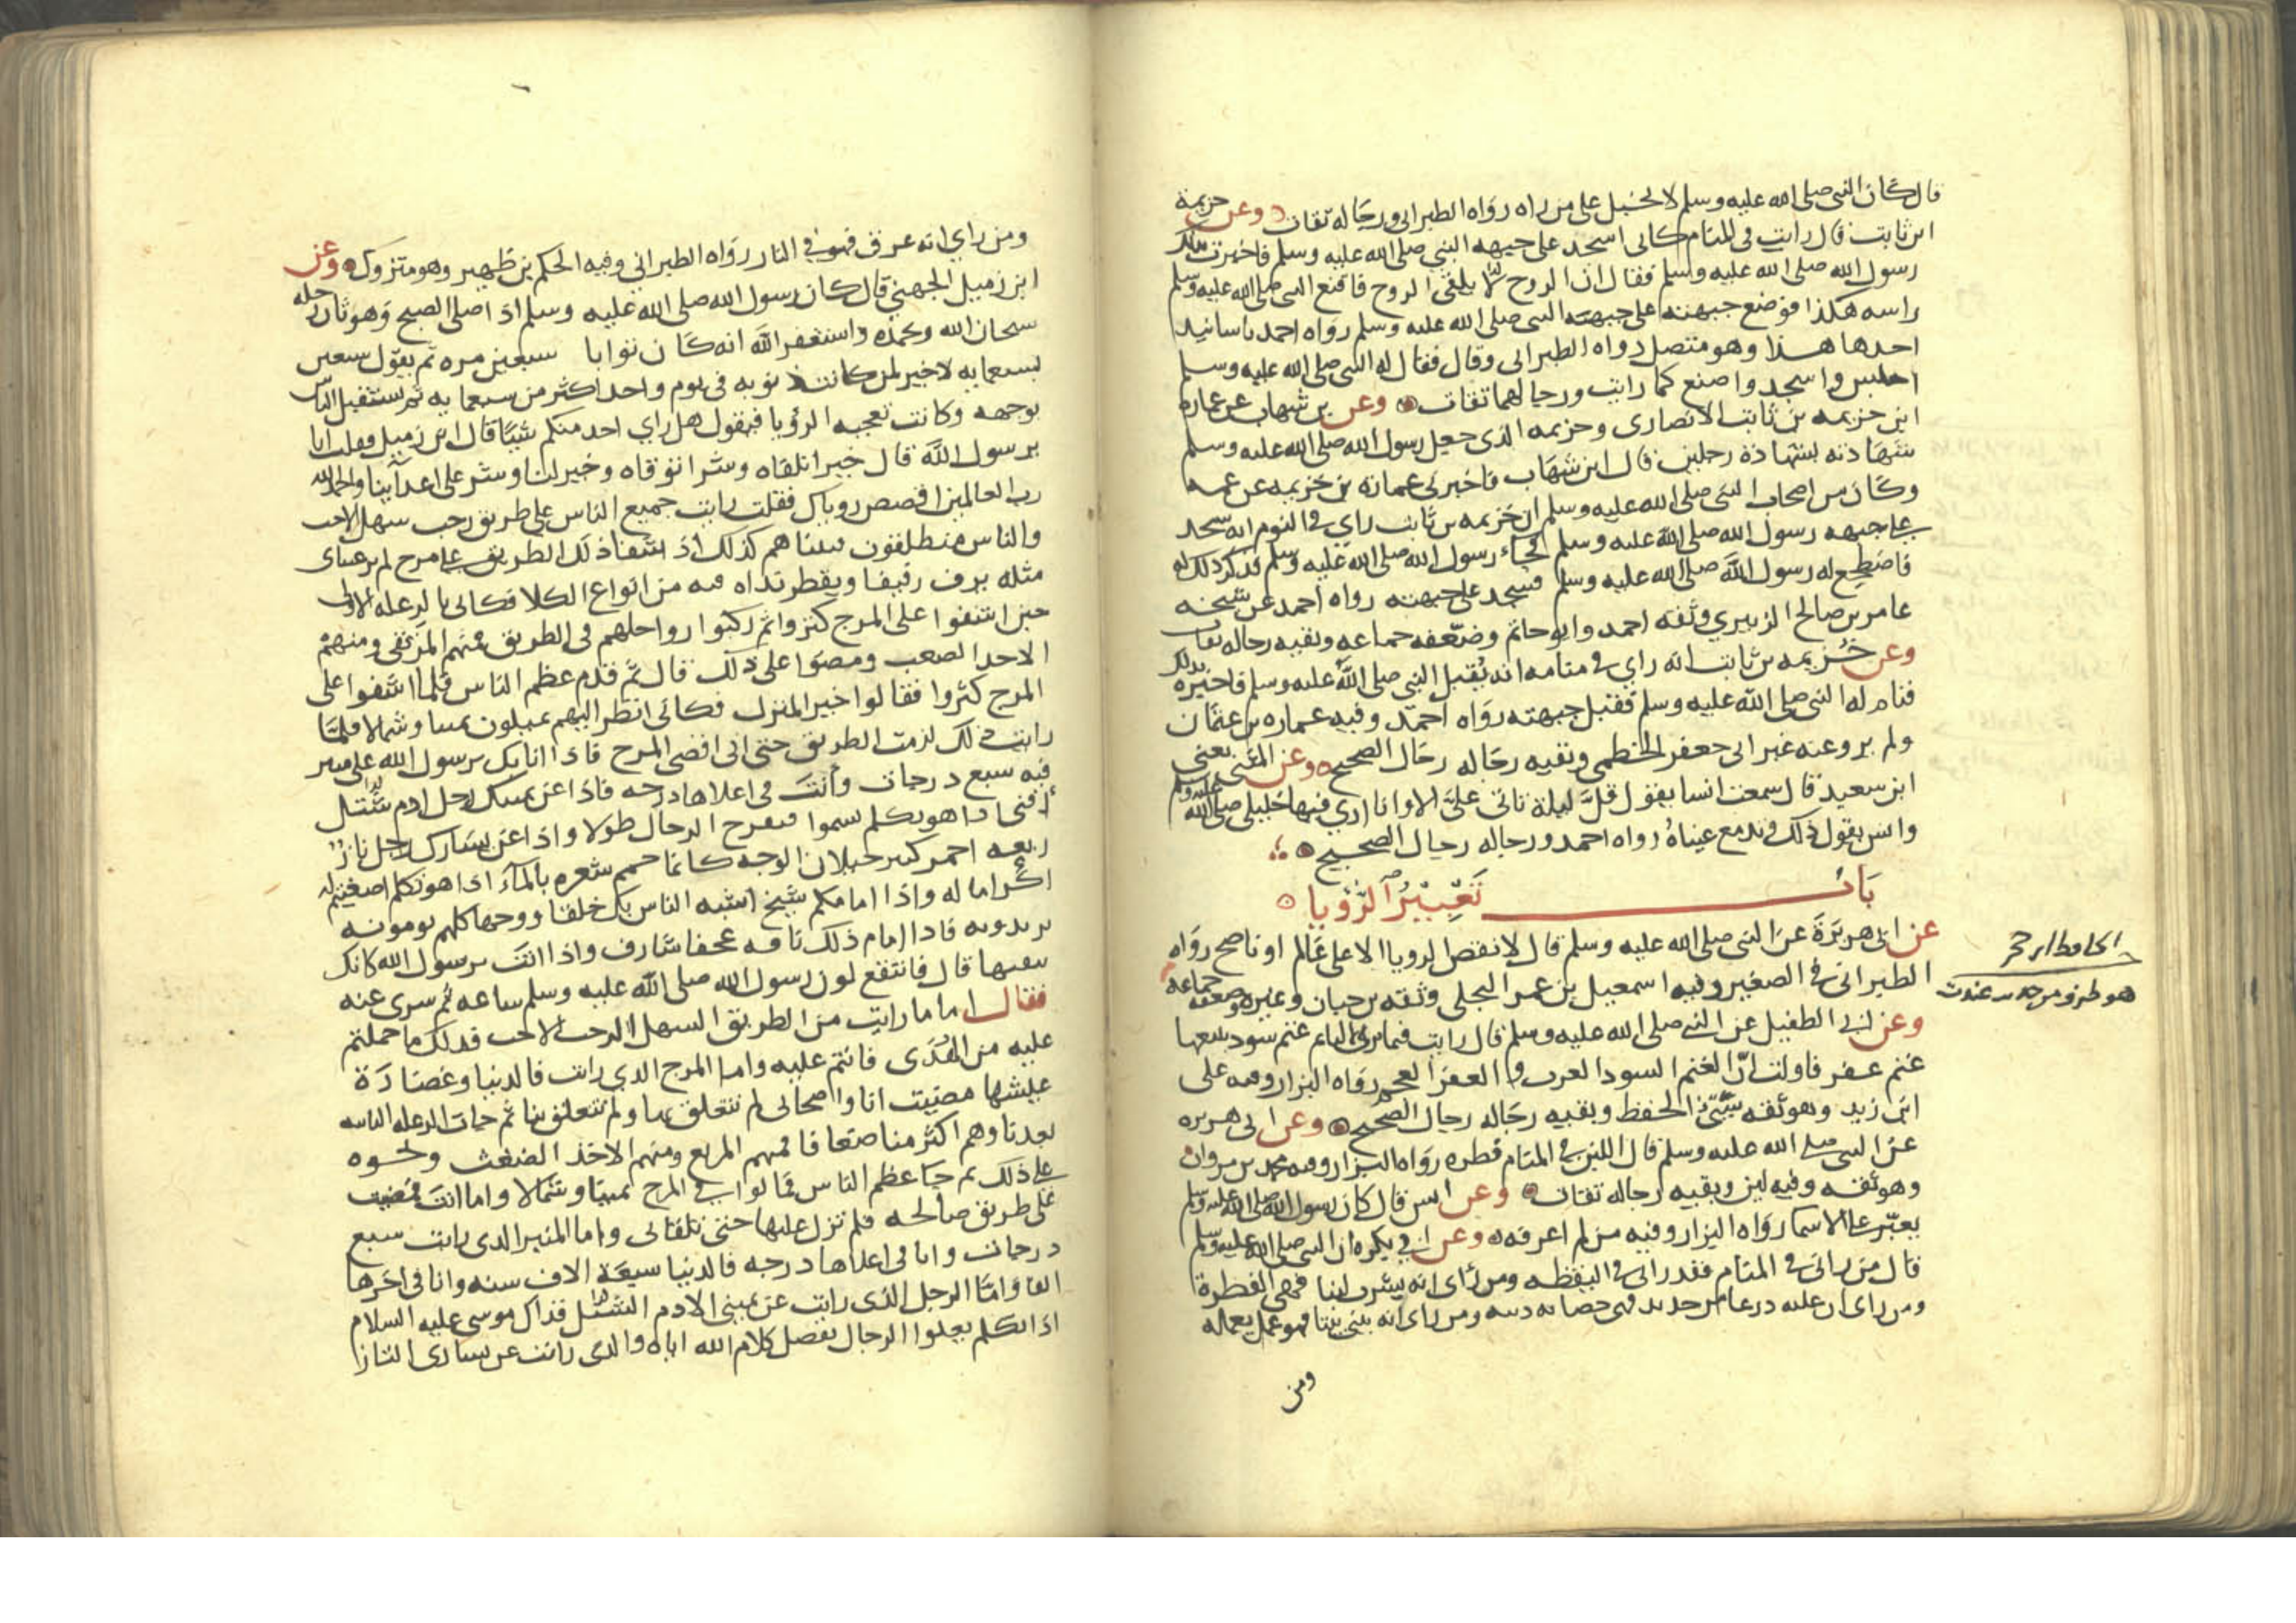 قال كان النبي صلى الله عليه وسلم لا يخيل على من راه رواه الطبراني ورجاله ثقات وعن خزيمة
ابن ثابت قال رايت في المنام كاني اسجد على جبهة النبي صلى الله عليه وسلم فاخبرت بذلك
رسول الله صلى الله عليه وسلم فقال ان الروح لا يلقى الروح فاقنع النبي صلى الله عليه وسلم
راسه هكذا فوضع جبهته على جبهة النبي صلى الله عليه وسلم رواه احمد باسانيد
احدها هذا وهو متصل رواه الطبراني وقال فقال له النبي صلى الله عليه وسلم
اجلس واسجد واصنع كما رايت ورجالهما ثقات وعن بن شهاب عن عماره
ابن خزيمه بن ثابت الانصاري وخزيمه الذي جعل رسول الله صلى الله عليه وسلم
شهادته بشهادة رجلين قال ابن شهاب فاخبرني عمارة بن خزيمه عن عمه
وكان من اصحاب النبي صلى الله عليه وسلم ان خزيمه بن ثابت راي في النوم انه سجد
على جبهه رسول الله صلى الله عليه وسلم فجاء رسول الله صلى الله عليه وسلم فذكر ذلك له
فاضطجع له رسول الله صلى الله عليه وسلم فسجد على جبهته رواه احمد عن شيخه
عامر بن صالح الزبيري وثقه احمد وابو حاتم وضعفه جماعه وبقيه رجاله ثقات
وعن خزيمه بن ثابت انه راي في منامه انه يقبل النبي صلى الله عليه وسلم فاخبره بذلك
فنام له النبي صلى الله عليه وسلم فقبل جبهته رواه احمد وفيه عماره بن عثمان
ولم يرو عنه غير ابي جعفر الخطمي وبقيه رجاله رجال الصحيح وعن المثنى يعني
ابن سعيد قال سمعت انسا يقول قل ليلة تاتي علي الا وانا اري فيها خليلي صلى الله عليه وسلم
وانس يقول ذلك وتدمع عيناه رواه احمد ورجاله رجال الصحيح
باب تعبير الرؤيا
عن ابي هريرة عن النبي صلى الله عليه وسلم قال لا تقص الرويا الا على عالم او ناصح رواه
الطبراني في الصغير وفيه اسمعيل بن عمر البجلي وثقه بن حبان وغيره وضعفه جماعه
وعن ابي الطفيل عن النبي صلى الله عليه وسلم قال رايت فيما يرى النايم غنم سود يتبعها
غنم عفر فاولت ان الغنم السود العرب والعفر العجم رواه البزار وفيه على
ابن زيد وهو ثقه سيئ الحفظ وبقيه رجاله رجال الصحيح وعن ابي هريره
عن النبي صلى الله عليه وسلم قال اللبن في المنام فطره رواه البزار وفيه محمد بن مروان
وهو ثقه وفيه لين وبقيه رجاله ثقات وعن انس قال كان رسول الله صلى الله عليه وسلم
يعبر على الاسما رواه البزار وفيه من لم اعرفه وعن ابي بكره ان النبي صلى الله عليه وسلم
قال من راني في المنام فقد راني في اليقظه ومن راى انه يشرب لبنا فهي الفطرة
ومن راى ان عليه درعا من حديد فهي حصانه دينه ومن راى انه يبني بيتا فهو عمل يعمله
ومن
الحافظ ابن حجر
هو طرف من حديث
ومن راي انه غرق فهو في النار رواه الطبراني وفيه الحكم بن ظهير وهو متروك وعن
ابن زميل الجهني قال كان رسول الله صلى الله عليه وسلم اذا صلى الصبح وهو ثان رجله
سبحان الله وبحمده واستغفر الله انه كان توابا سبعين مره ثم يقول سبعين
بسبعمايه لا خير لمن كانت ذنوبه في يوم واحد اكثر من سبعمايه ثم يستقبل الناس
بوجهه وكانت تعجبه الرؤيا فيقول هل راي احد منكم شيئا قال ابن زميل فقلت انا
يرسول الله قال خيرا تلقاه وشرا توقاه وخير لنا وشر على اعدائنا والحمد لله
رب العالمين اقصص روياك فقلت رايت جميع الناس على طريق رحب سهل لاحب
والناس منطلقون فبينا هم كذلك اذ اشفا ذلك الطريق على مرج لم تر عيناي
مثله يرف رفيفا ويقطر نداه فيه من انواع الكلا فكاني بالرعله الاولى
حين اشفوا على المرج كبروا ثم ركبوا رواحلهم في الطريق فمنهم المرتعي ومنهم
الاخذ الضغث ومضوا على ذلك قال ثم قدم عظم الناس فلما اشفوا على
المرج كبروا فقالوا خير المنزل فكاني انظر اليهم يميلون يمينا وشمالا فلما
رايت ذلك لزمت الطريق حتى اتي اقصى المرج فاذا انا بك يرسول الله على منبر
فيه سبع درجات وانت في اعلاها درجه فاذا عن يمينك رجل ادم شثل
اقنى اذا هو تكلم يسموا فيفرع الرجال طولا واذا عن يسارك رجل تار
ربعه احمر كثير خيلان الوجه كانما حمم شعره بالماء اذا هو تكلم اصغيتم له
اكراما له واذا امامكم شيخ اشبه الناس بك خلقا ووجها كلهم يومونه
يريدونه فاذا امام ذلك ناقه عجفا شارف واذا انت يرسول الله كانك
تبعثها قال فانتقع لون رسول الله صلى الله عليه وسلم ساعه ثم سرى عنه
فقال اما ما رايت من الطريق السهل الرحب اللاحب فذلك ما حملتم
عليه من الهدى فانتم عليه واما المرج الذي رايت فالدنيا وغضارة
عيشها مضيت انا واصحابي لم نتعلق بها ولم تتعلق بنا ثم جات الرعله الثانيه
بعدنا وهم اكثر منا ضعافا فمنهم المرتع ومنهم الاخذ الضغث ونحوه
على ذلك ثم جا عظم الناس فمالوا في المرج يمينا وشمالا واما انت فمضيت
على طريق صالحه فلم تزل عليها حتى تلقاني واما المنبر الذي رايت سبع
درجات وانا في اعلاها درجه فالدنيا سبعة الاف سنه وانا في اخرها
الفا واما الرجل الذي رايت عن يميني الادم الشثل فذاك موسى عليه السلام
اذا تكلم يعلوا الرجال بفضل كلام الله اياه والذي رايت عن يساري التار